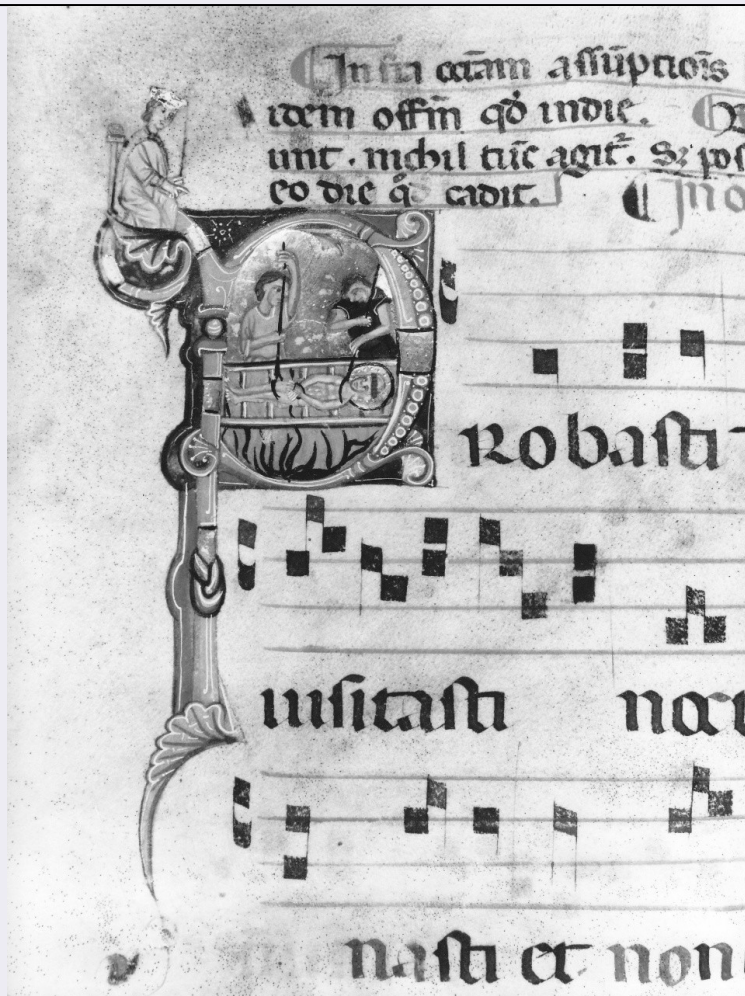 In fra octam assūptiois
idem offm qd indie.
unt. nichil tūc agit. S; pos
eo die qd cadit. In o
PRobasti
uisitasti noct
nasti et non